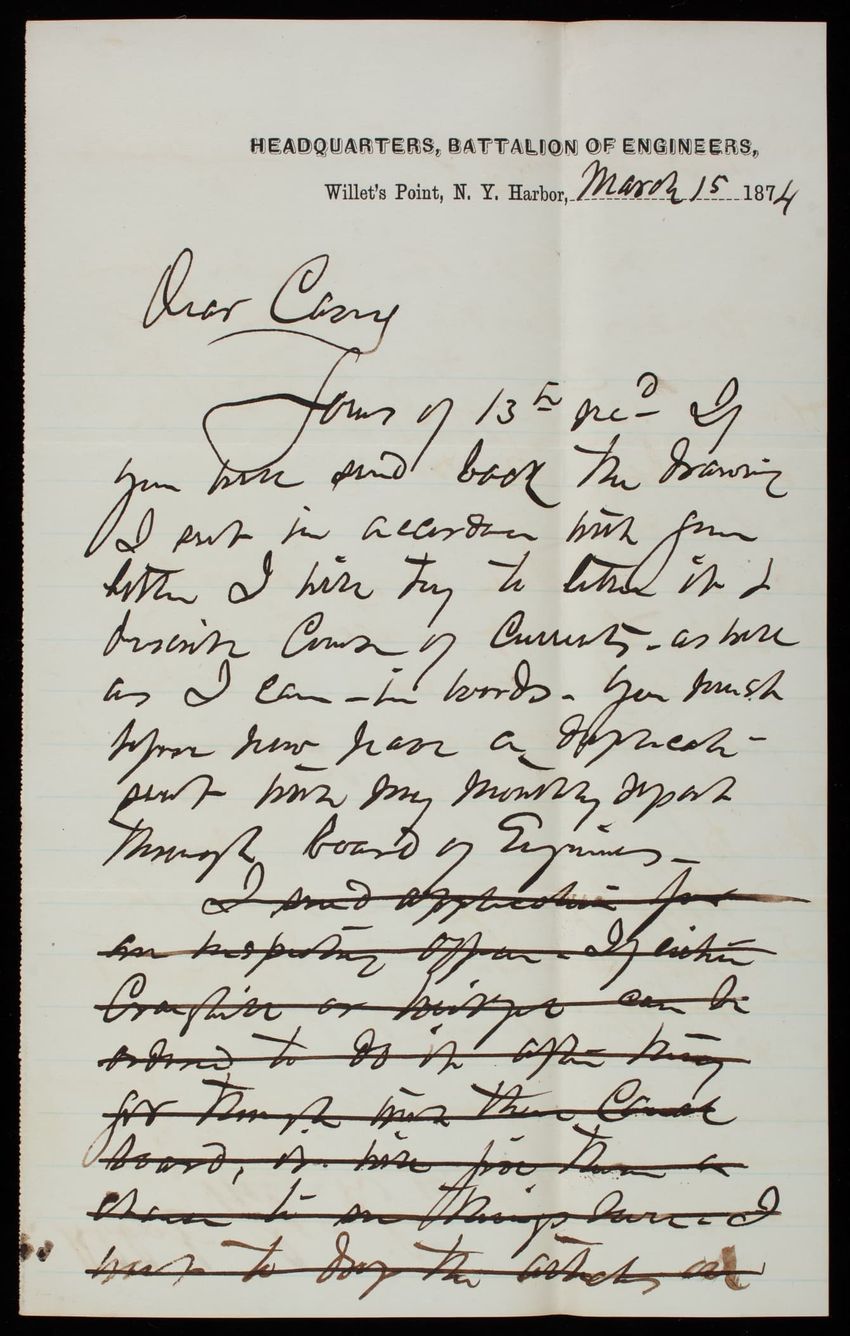 HEADQUARTERS, BATTALION OF ENGINEERS,
Willet's Point, N. Y. Harbor, March 15 1874
Dear Casey
Yours of 13th recd If
you will send back the drawing
I sent in accordance with your
letter I will try to letter it &
describe Course of Currents - as well
as I can - in words - You must
before now have a duplicate
sent with my monthly report
through board of Engineers -
I send application for
an inspecting officer - If either
Craighill or can be
ordered to do it after they
get through with their Canal
board, it will give them a
chance to see things here - I
want to the